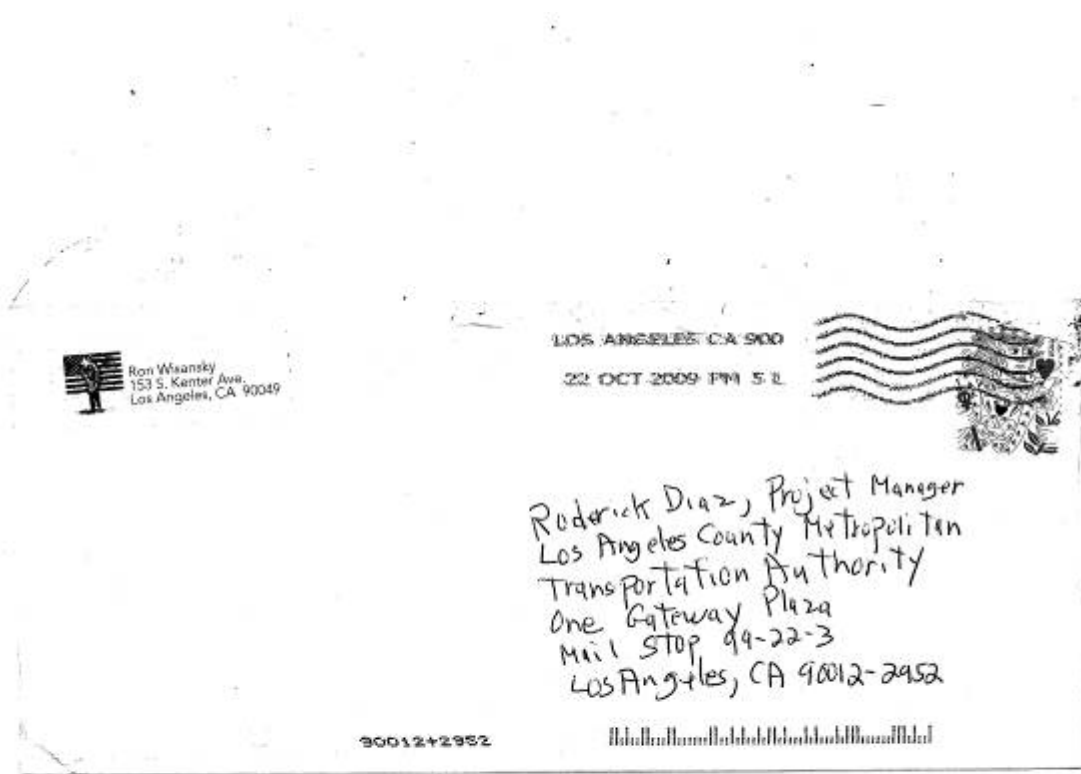 Ron Wisansky
153 S. Kenter Ave.
Los Angeles, CA 90049
LOS ANGELES CA 900
22 OCT 2009 PM 5 L
Roderick Diaz, Project Manager
Los Angeles County Metropolitan
Transportation Authority
One Gateway Plaza
Mail Stop 99-22-3
Los Angeles, CA 90012-2952
90012+2952